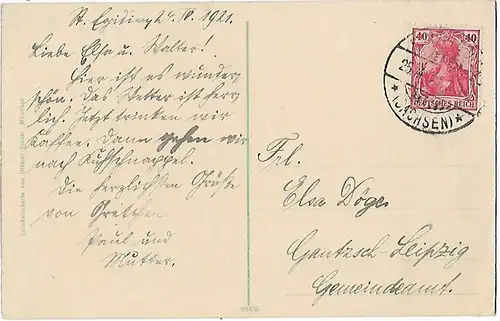 St. Egidien, 24. IV. 1921.
Liebe Elsa u. Walter!
Hier ist es wunder
schön. Das Wetter ist herr
lich. Jetzt trinken wir
Kaffee. Dann gehen wir
nach Kuhschnappel.
Die herzlichsten Grüße
von Gretchen
Paul und
Mutter.
40 40
DEUTSCHES REICH
* (SACHSEN) *
Frl.
Elsa Döge
Gautzsch-Leipzig
Gemeindeamt.